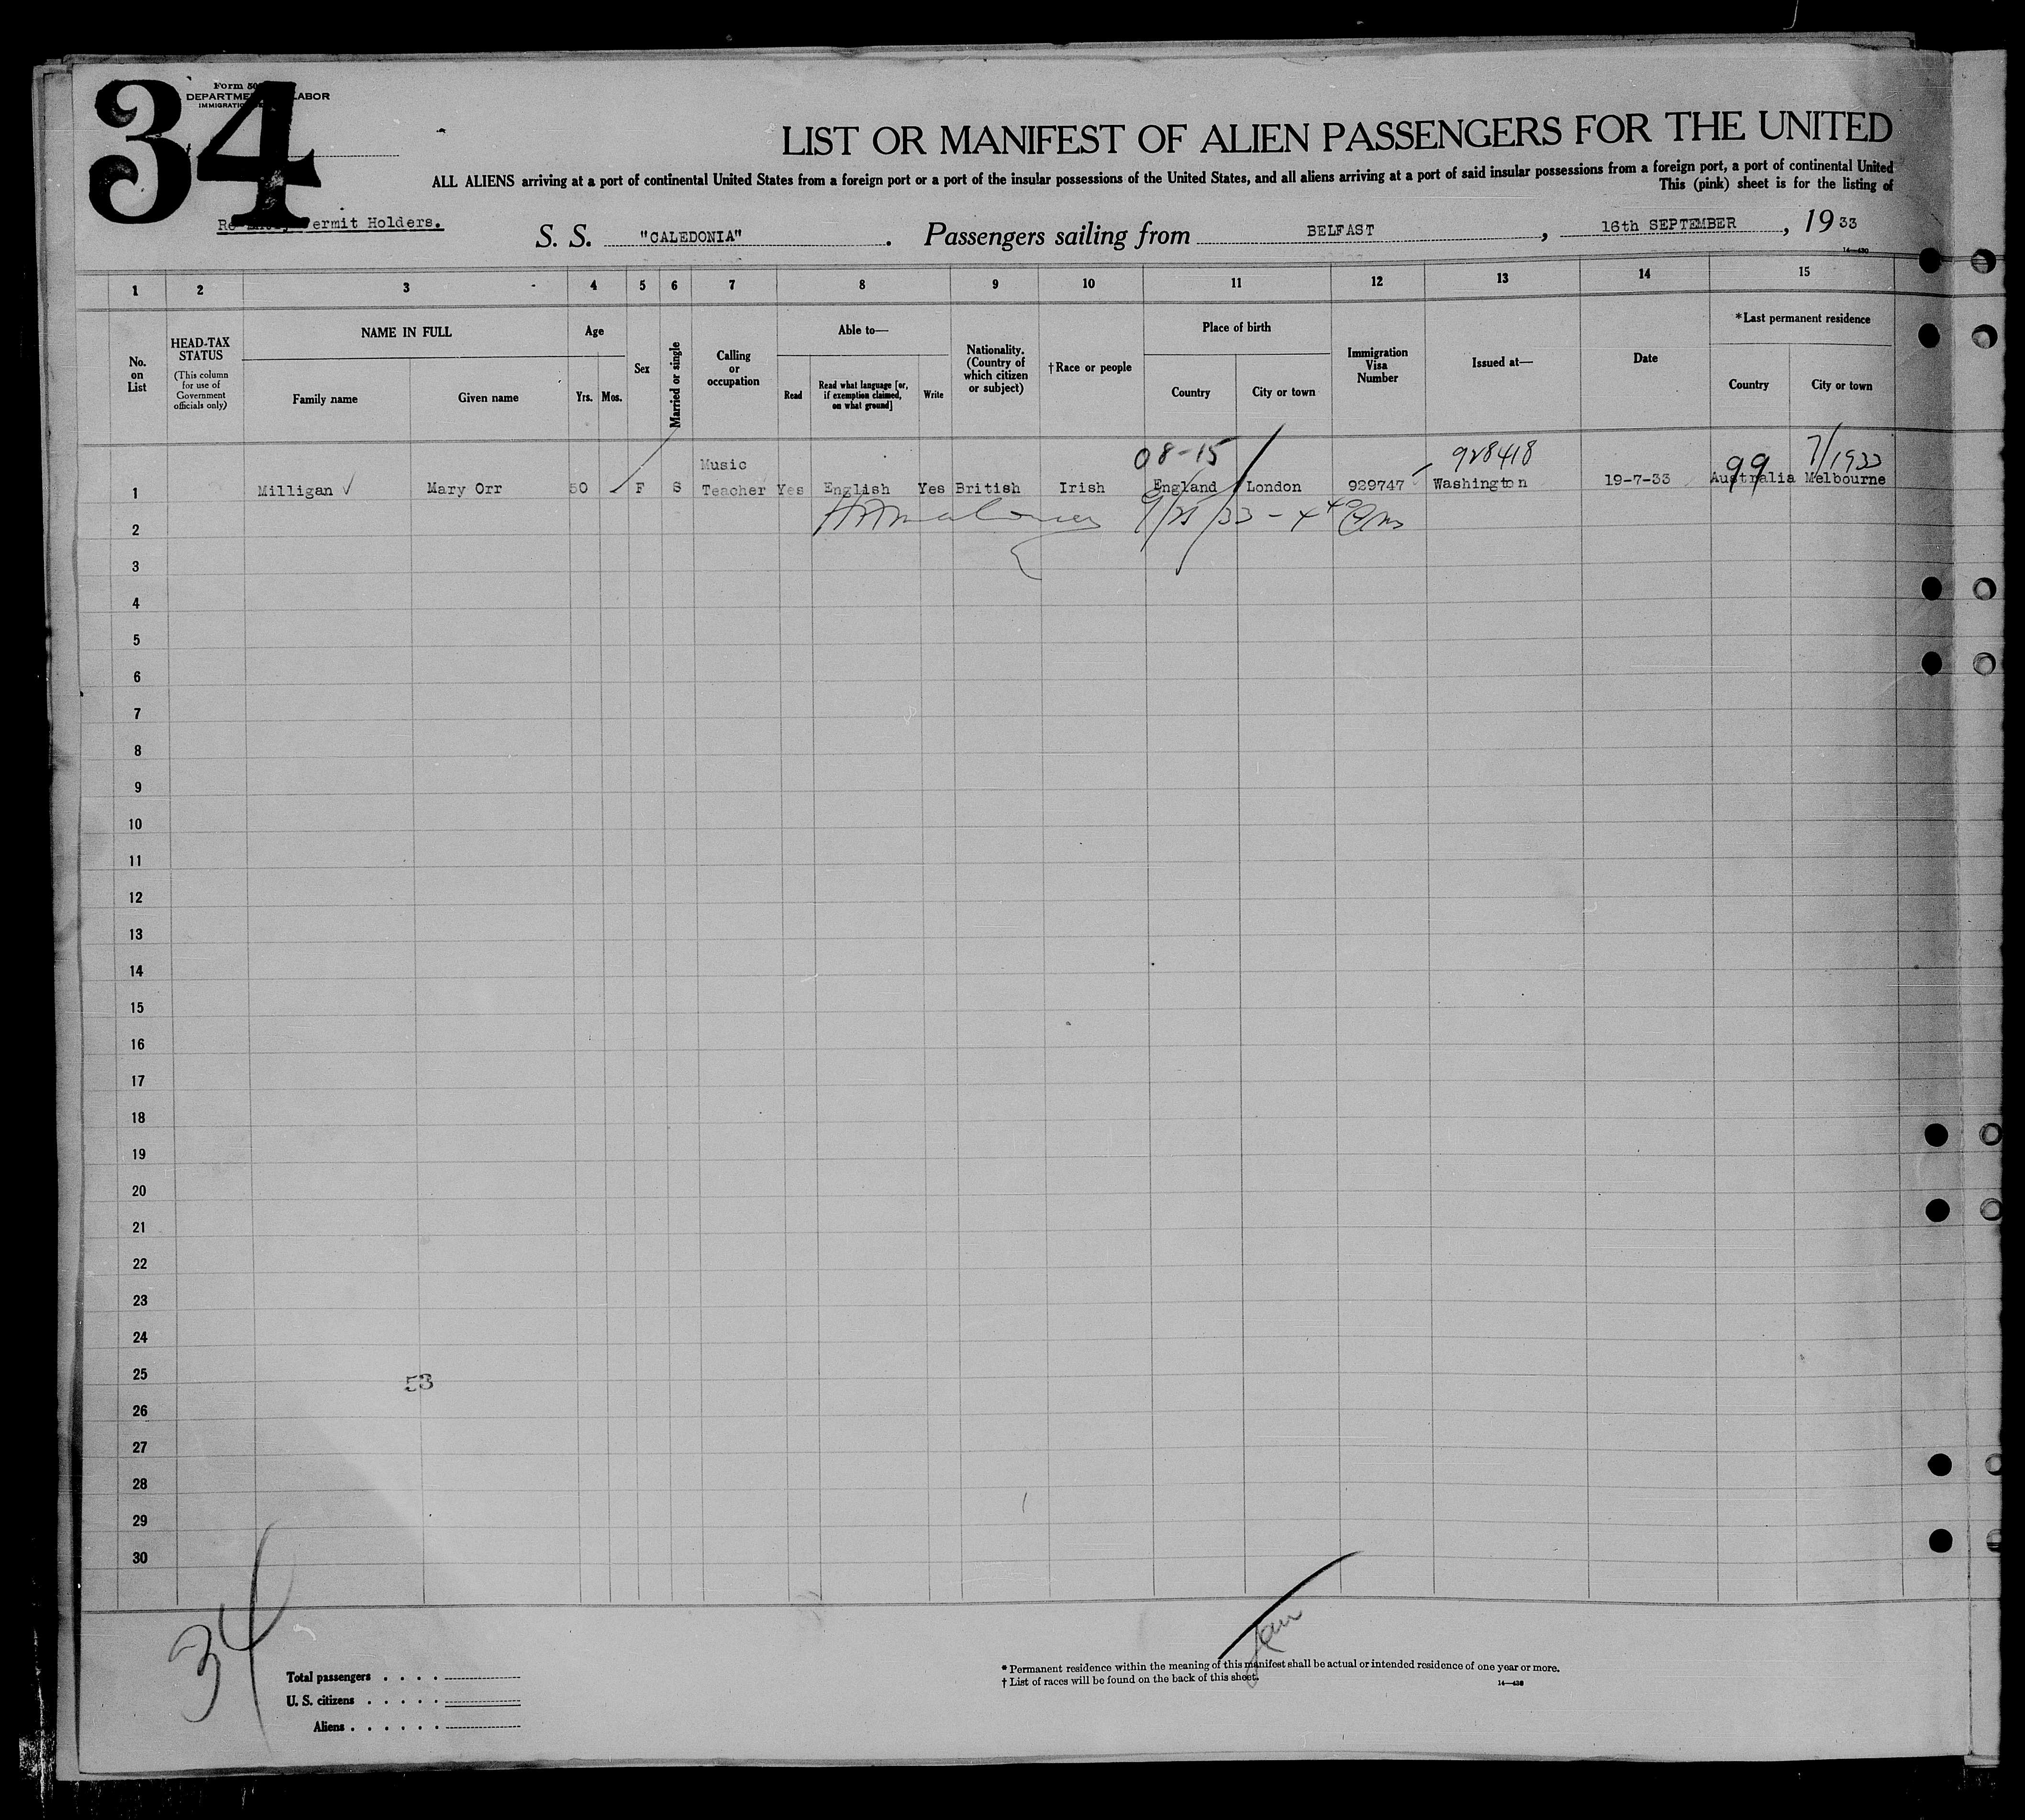 34
Form 50
DEPARTME LABOR
IMMIGRATIO
LIST OR MANIFEST OF ALIEN PASSENGERS FOR THE UNITED
ALL ALIENS arriving at a port of continental United States from a foreign port or a port of the insular possessions of the United States, and all aliens arriving at a port of said insular possessions from a foreign port, a port of continental United
This (pink) sheet is for the listing of
Re-Entry Permit Holders.
S. S. "CALEDONIA". Passengers sailing from BELFAST, 16th SEPTEMBER, 1933
14—430
1 2 3 4 5 6 7 8 9 10 11 12 13 14 15
No. on List
HEAD-TAX STATUS
(This column for use of Government officials only)
NAME IN FULL
Family name
Given name
Age
Yrs.
Mos.
Sex
Married or single
Calling or occupation
Able to—
Read
Read what language [or, if exemption claimed, on what ground]
Write
Nationality. (Country of which citizen or subject)
†Race or people
Place of birth
Country
City or town
Immigration Visa Number
Issued at—
Date
*Last permanent residence
Country
City or town
08-15 928418 99 7/1933
1 Milligan ✓ Mary Orr 50 F S Music Teacher Yes English Yes British Irish England London 929747 Washington 19-7-33 Australia Melbourne
2
3
4
5
6
7
8
9
10
11
12
13
14
15
16
17
18
19
20
21
22
23
24
25
53
26
27
28
29
30
34
Total passengers . . . .
U. S. citizens . . . . .
Aliens . . . . . .
* Permanent residence within the meaning of this manifest shall be actual or intended residence of one year or more.
† List of races will be found on the back of this sheet.
14—430